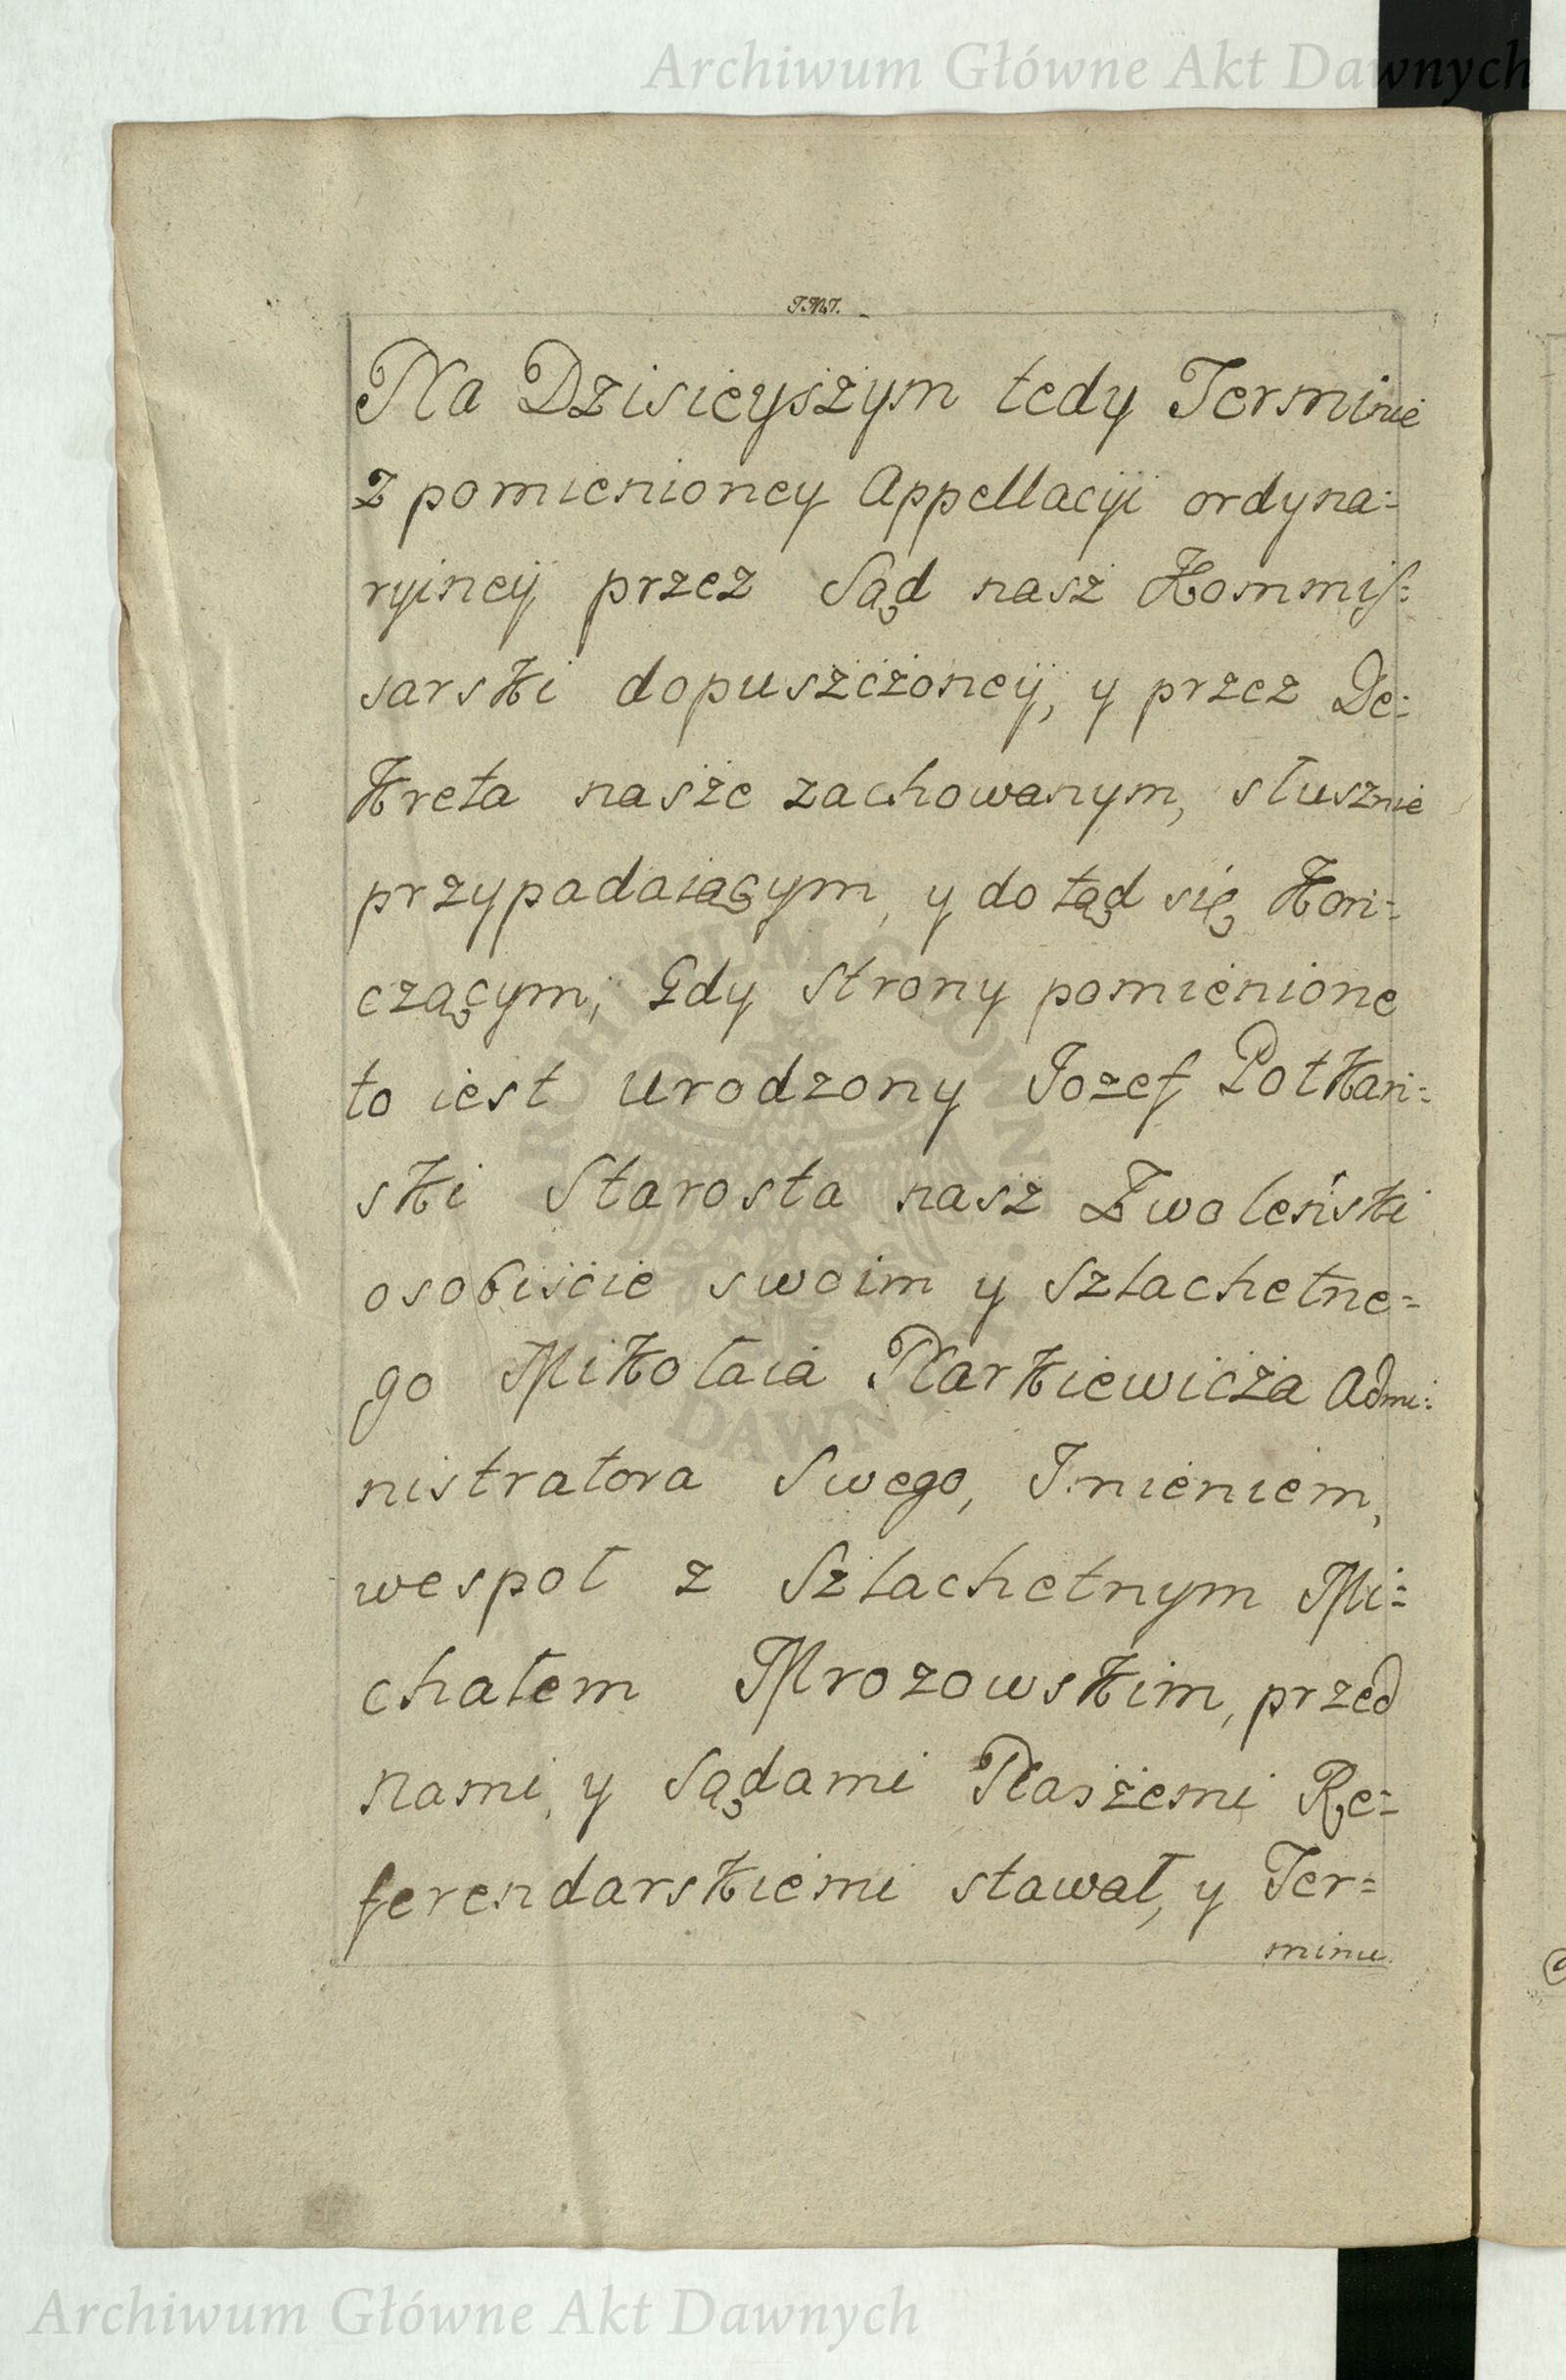 Archiwum Główne Akt Dawnych
Na Dzisieyszym tedy Terminie
z pomienioney Appellacyi ordyna=
ryiney przez Sąd nasz Kommis=
sarski dopuszczoney, y przez De=
kreta nasze zachowanym, słusznie
przypadaiącym, y dotąd się Kon=
czącym, Gdy strony pomienione
to iest Urodzony Jozef Potkan=
ski Starosta nasz Zwoleński
osobiście swoim y Szlachetne=
go Mikołaia Narkiewicza Admi=
nistratora Swego, Imieniem,
wespoł z Szlachetnym Mi=
chałem Mrozowskim, przed
nami, y Sądami Naszemi Re=
ferendarskiemi stawał, y Ter=
minu
ARCHIWUM GŁÓWNE AKT DAWNYCH
Archiwum Główne Akt Dawnych